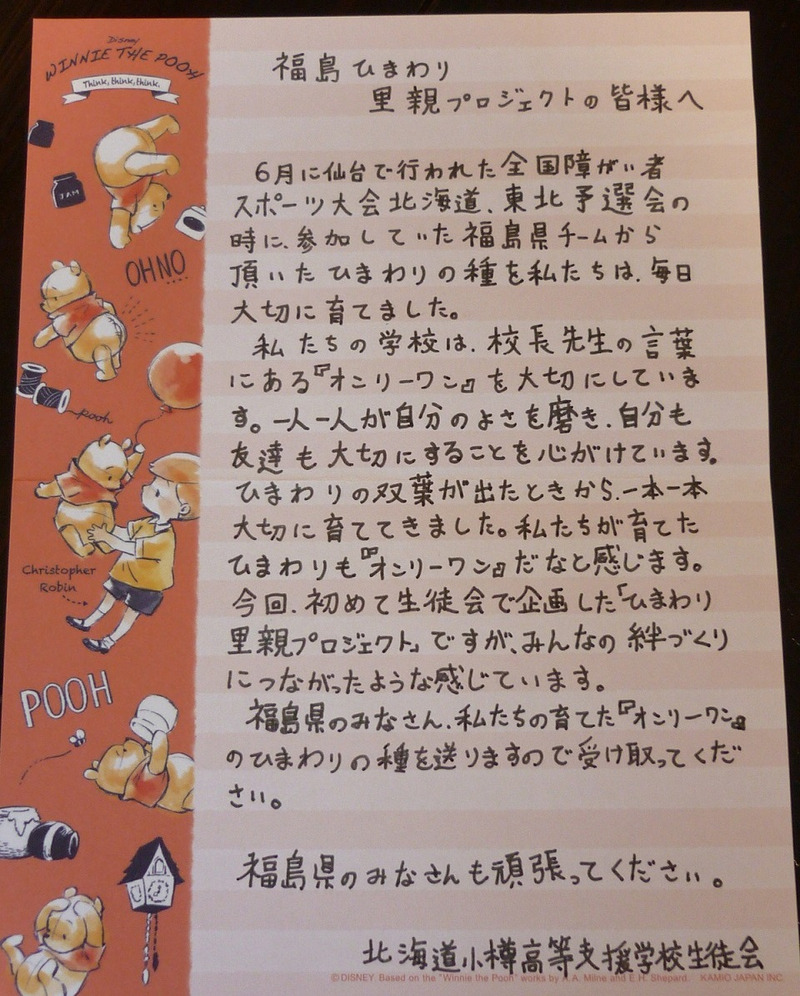 Disney
WINNIE THE POOH
Think, think, think.
JAM
OH NO
Pooh
Christopher
Robin
POOH
福島ひまわり
里親プロジェクトの皆様へ
6月に仙台で行われた全国障がい者
スポーツ大会北海道、東北予選会の
時に、参加していた福島県チームから
頂いたひまわりの種を私たちは、毎日
大切に育てました。
私たちの学校は、校長先生の言葉
にある『オンリーワン』を大切にしていま
す。一人一人が自分のよさを磨き、自分も
友達も大切にすることを心がけています。
ひまわりの双葉が出たときから、一本一本
大切に育ててきました。私たちが育てた
ひまわりも『オンリーワン』だなと感じます。
今回、初めて生徒会で企画した「ひまわり
里親プロジェクト」ですが、みんなの絆づくり
につながったような感じています。
福島県のみなさん、私たちの育てた『オンリーワン』
のひまわりの種を送りますので受け取ってくだ
さい。
福島県のみなさんも頑張ってください。
北海道小樽高等支援学校生徒会
©DISNEY. Based on the "Winnie the Pooh" works by A. A. Milne and E.H. Shepard. KAMIO JAPAN INC.